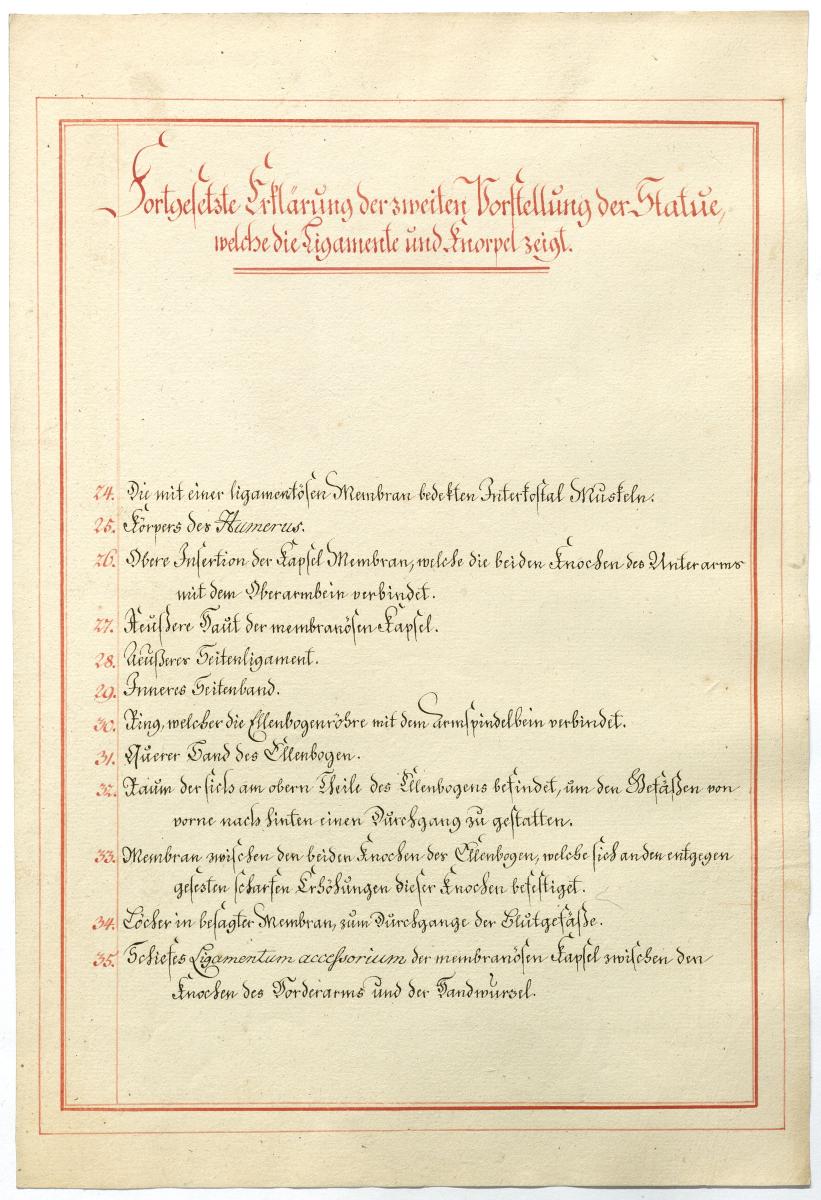 Fortgesetzte Erklärung der zweiten Vorstellung der Statue,
welche die Ligamente und Knorpel zeigt.
24. Die mit einer ligamentösen Membran bedekten Interkostal Muskeln.
25. Körpers des Humerus.
26. Obere Insertion der Kapsel Membran, welche die beiden Knochen des Unterarms
mit dem Oberarmbein verbindet.
27. Aeußere Haut der membranösen Kapsel.
28. Aeußeres Seitenligament.
29. Inneres Seitenband.
30. Ring, welcher die Ellenbogenröhre mit dem Armspindelbein verbindet.
31. Querer Band des Ellenbogen.
32. Raum der sich am obern Theile des Ellenbogens befindet, um den Gefäßen von
vorne nach hinten einen Durchgang zu gestatten.
33. Membran zwischen den beiden Knochen des Ellenbogen, welche sich an den entgegen
gesezten scharfen Erhöhungen dieser Knochen befestiget.
34. Löcher in besagter Membran, zum Durchgange der Blutgefäße.
35. Schiefes Ligamentum accessorium der membranösen Kapsel zwischen den
Knochen des Vorderarms und der Handwurzel.